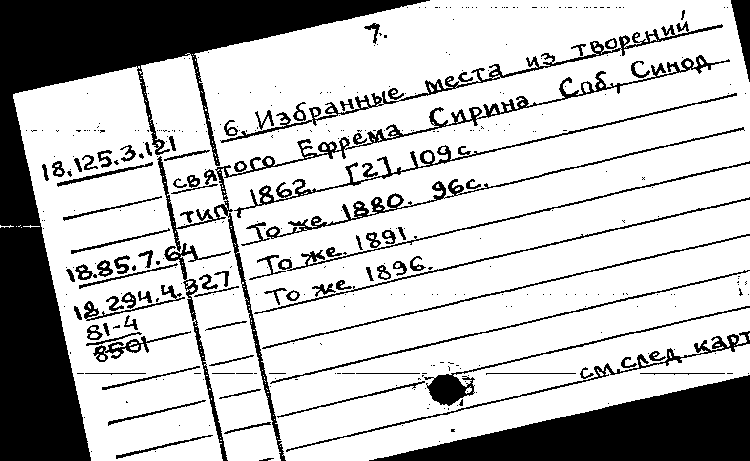 7.
6. Избранные места из творений
18.125.3.121 святого Ефрема Сирина. Спб., Синод
тип, 1862. [2], 109 с.
18.85.7.64 То же. 1880. 96с.
18.294.4.327 То же. 1891.
81-4 То же. 1896.
8501
см. след. карт